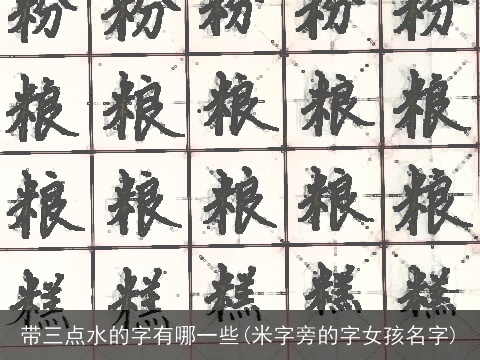 粉 粉 粉 粉 粉
粮 粮 粮 粮 粮
粮 粮 粮 粮 粮
糕 糕 糕 糕 糕
带三点水的字有哪一些(米字旁的字女孩名字)